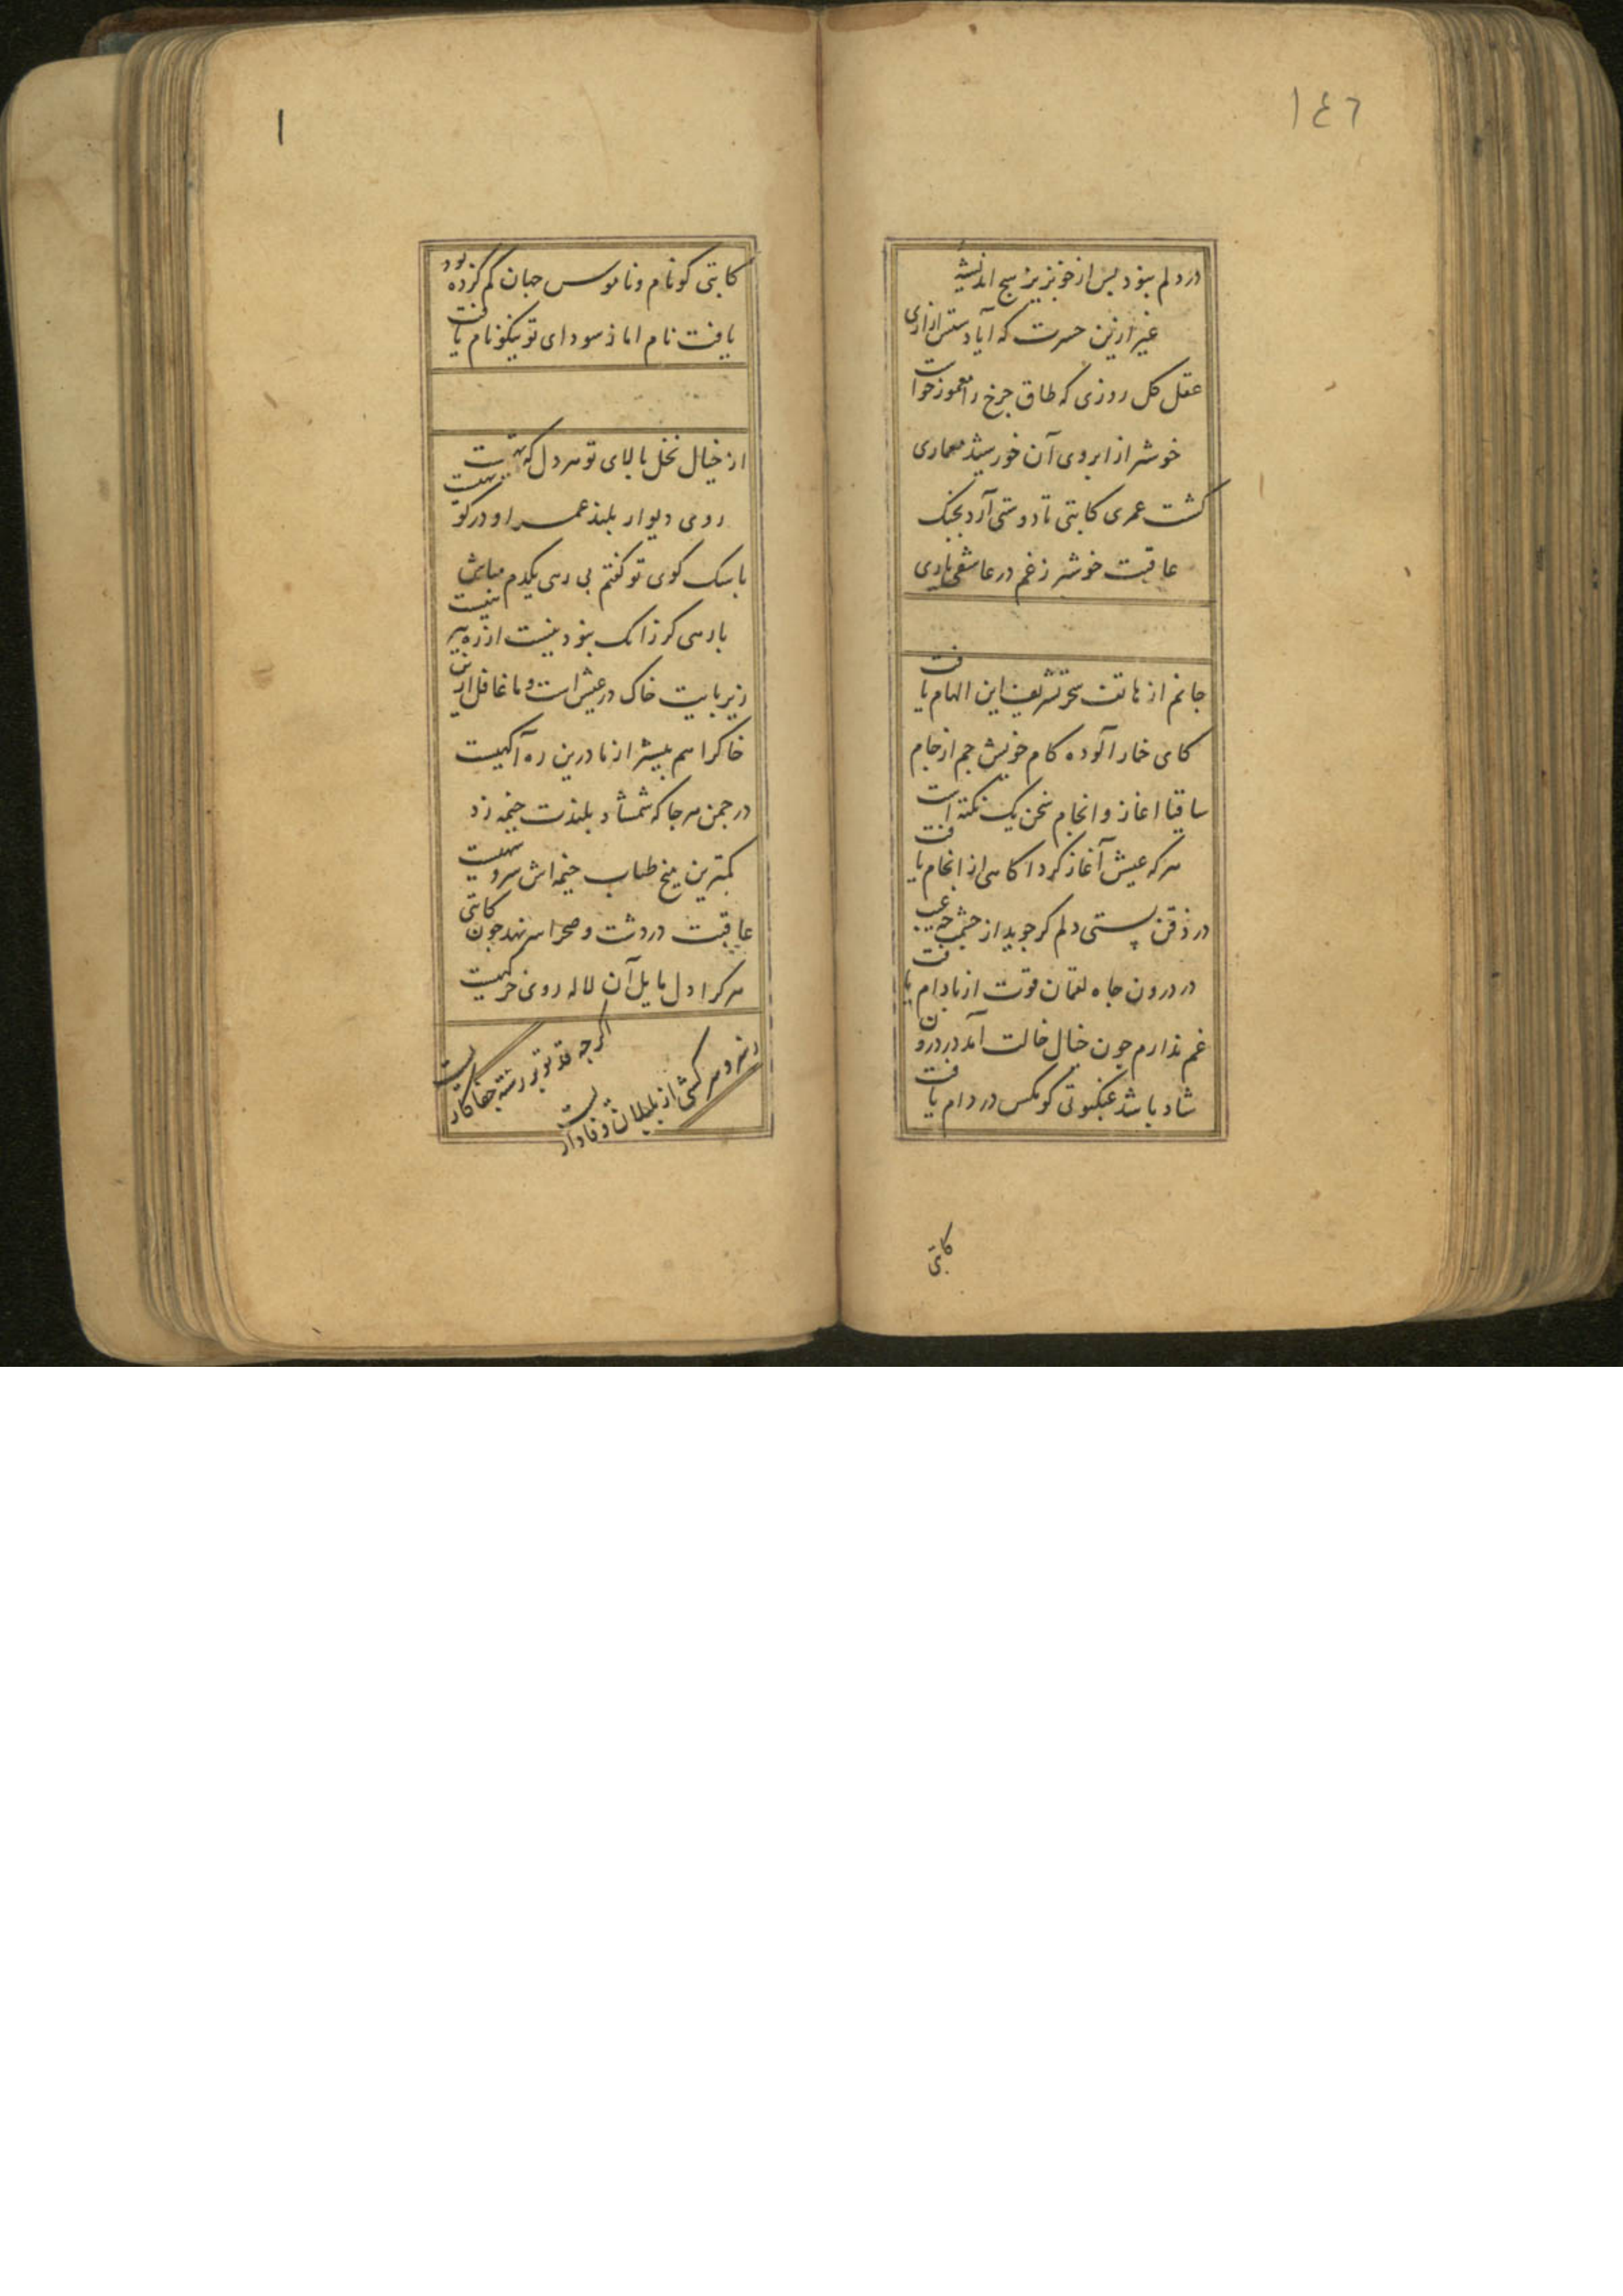 ١٤٦
در دلم نبود پس از خونریز هیچ اندیشه
غیر ازین حسرت که آیا دستش ازاری
عقل کل روزی که طاق چرخ را معمور خواست
خوشتر از ابروی آن خورشید معماری
کشت عمری کاتبی تا دوستی آرد بچنک
عاقبت خوشتر ز غم در عاشقی یاری
جانم از هاتف سحر تشریف این الهام یافت
کای خمار آلوده کام خویش جم از جام
ساقیا اغاز و انجام سخن یک نکته است
هرکه عیش آغاز کرد اکاهی از انجام یافت
در ذقن پستی دلم کر جوید از چشمت چه عیب
در درون چاه لقمان قوت از بادام یافت
غم ندارم چون خیال خالت آمد در درون
شاد باشد عنکبوتی کو مکس در دام یافت
کاتبی
١
کاتبی کو نام و ناموس جهان کم کرده بود
یافت نام اما ز سودای تو نیکو نام یافت
از خیال نخل بالای تو هر دل که تهیست
روی دیوار بلند عمر او در کوتهیست
با سک کوی تو کفتم بی رهی یکدم مباش
با رهی کر زانک نبود نیست از ره بیرهیست
زیر پایت خاک در عیش است و ما غافل ازین
خاکرا هم بیشتر از ما درین ره آکهیست
در چمن هر جا که شمشاد بلندت خیمه زد
کمترین میخ طناب خیمه اش سرو سهیست
عاقبت در دشت و صحرا سر نهد چون کاتبی
هرکرا دل مایل آن لاله روی خرکهیست
اگرچه قد تو بر رشته جفا کاریست
سرو سرکشی از بلبلان وفاداریست